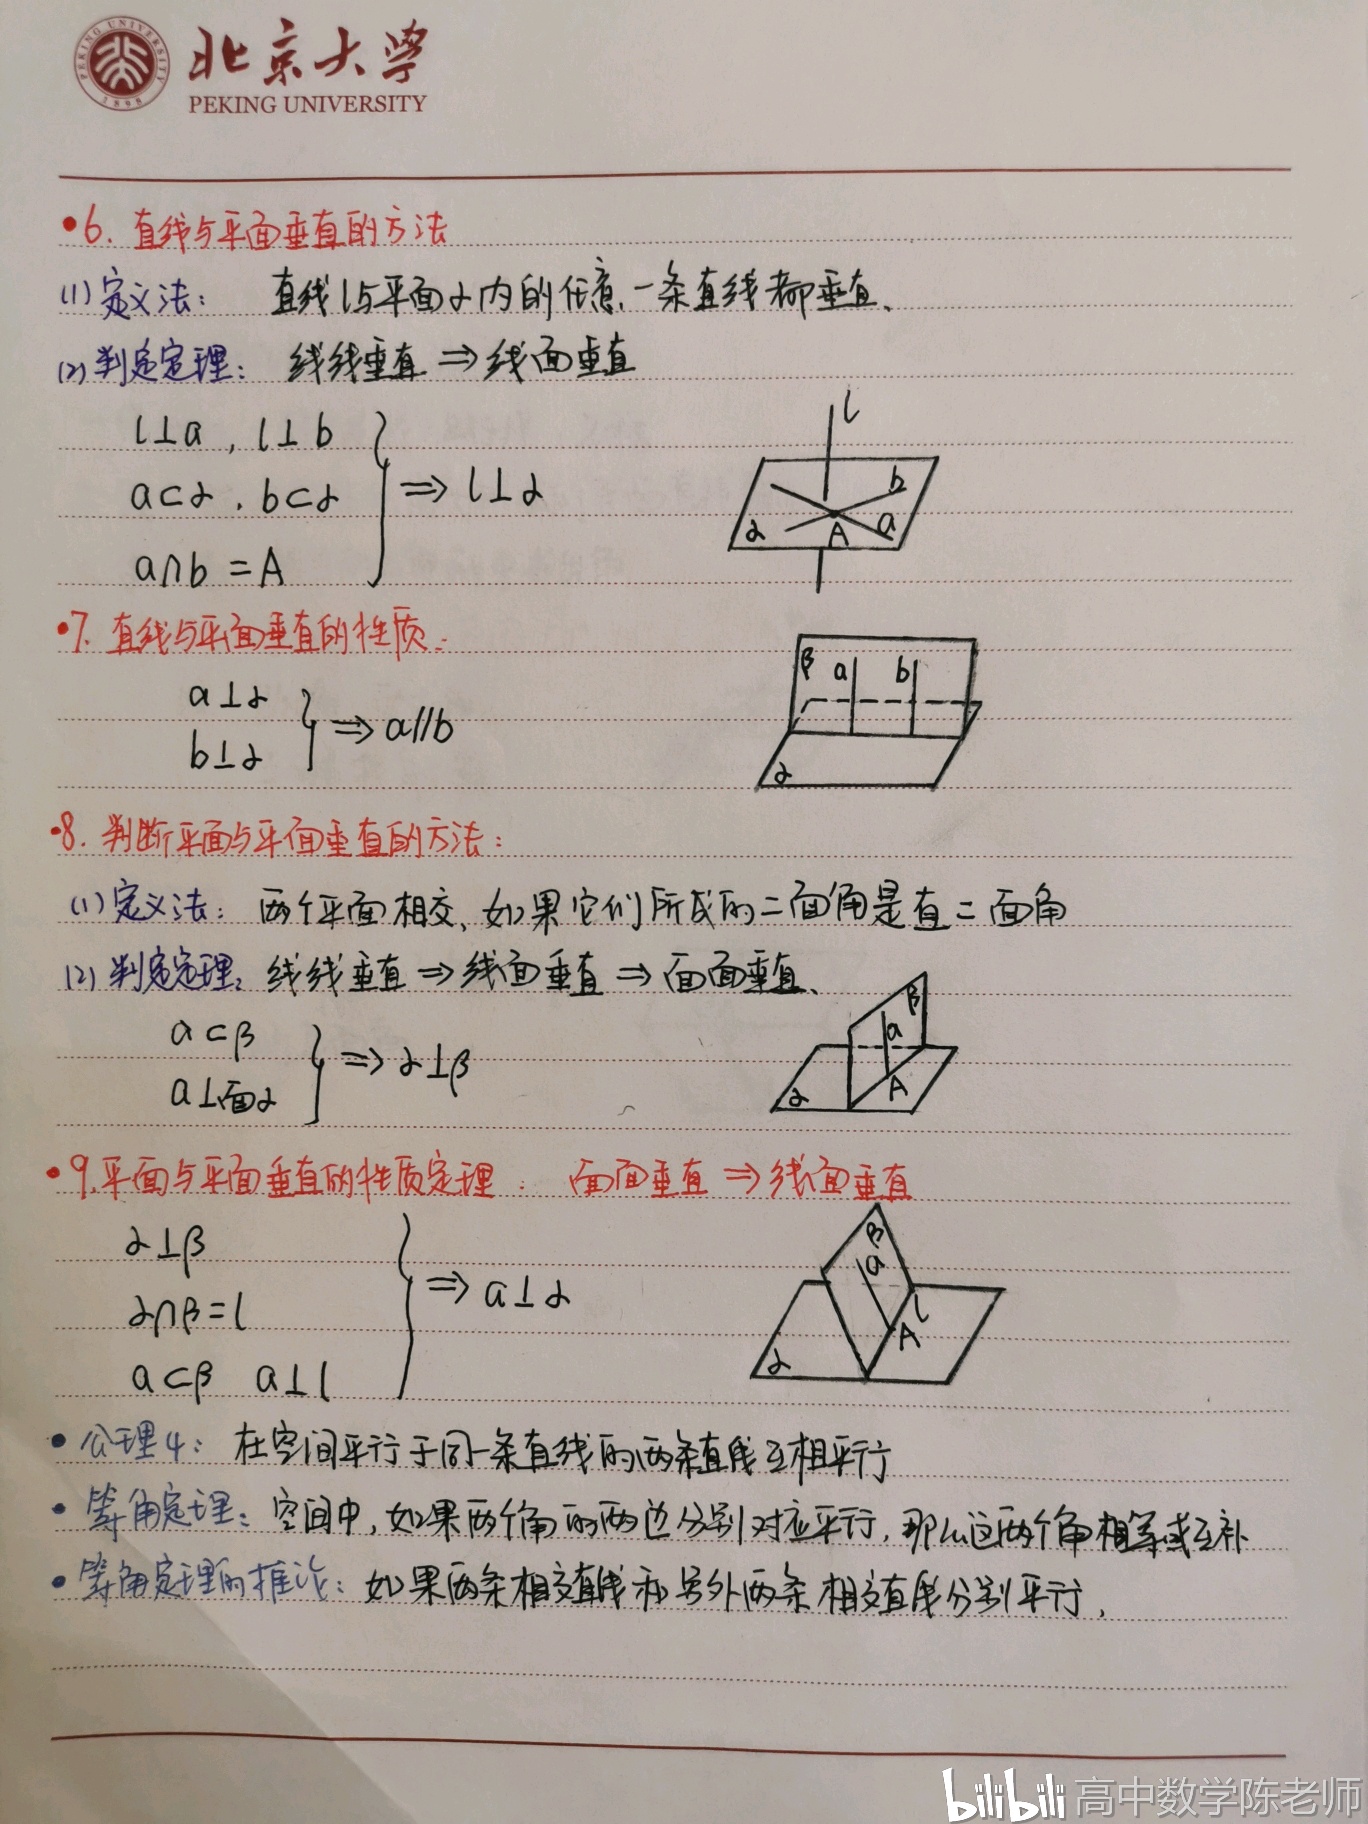 PEKING UNIVERSITY
1898
北京大学
PEKING UNIVERSITY
•6. 直线与平面垂直的方法
(1)定义法: 直线l与平面α内的任意一条直线都垂直.
(2)判定定理: 线线垂直 ⇒ 线面垂直
l⊥a, l⊥b
a⊂α, b⊂α ⇒ l⊥α
a∩b=A
l
b
a
A
α
•7. 直线与平面垂直的性质:
a⊥α
b⊥α ⇒ a//b
β a b
α
•8. 判断平面与平面垂直的方法:
(1)定义法: 两个平面相交, 如果它们所成的二面角是直二面角
(2)判定定理: 线线垂直 ⇒ 线面垂直 ⇒ 面面垂直.
a⊂β
a⊥面α ⇒ α⊥β
β
a
A
α
•9. 平面与平面垂直的性质定理: 面面垂直 ⇒ 线面垂直
α⊥β
α∩β=l ⇒ a⊥α
a⊂β a⊥l
β
a
l
A
α
• 公理4: 在空间平行于同一条直线的两条直线互相平行
• 等角定理: 空间中, 如果两个角的两边分别对应平行, 那么这两个角相等或互补
• 等角定理的推论: 如果两条相交直线和另外两条相交直线分别平行,
bilibili 高中数学陈老师